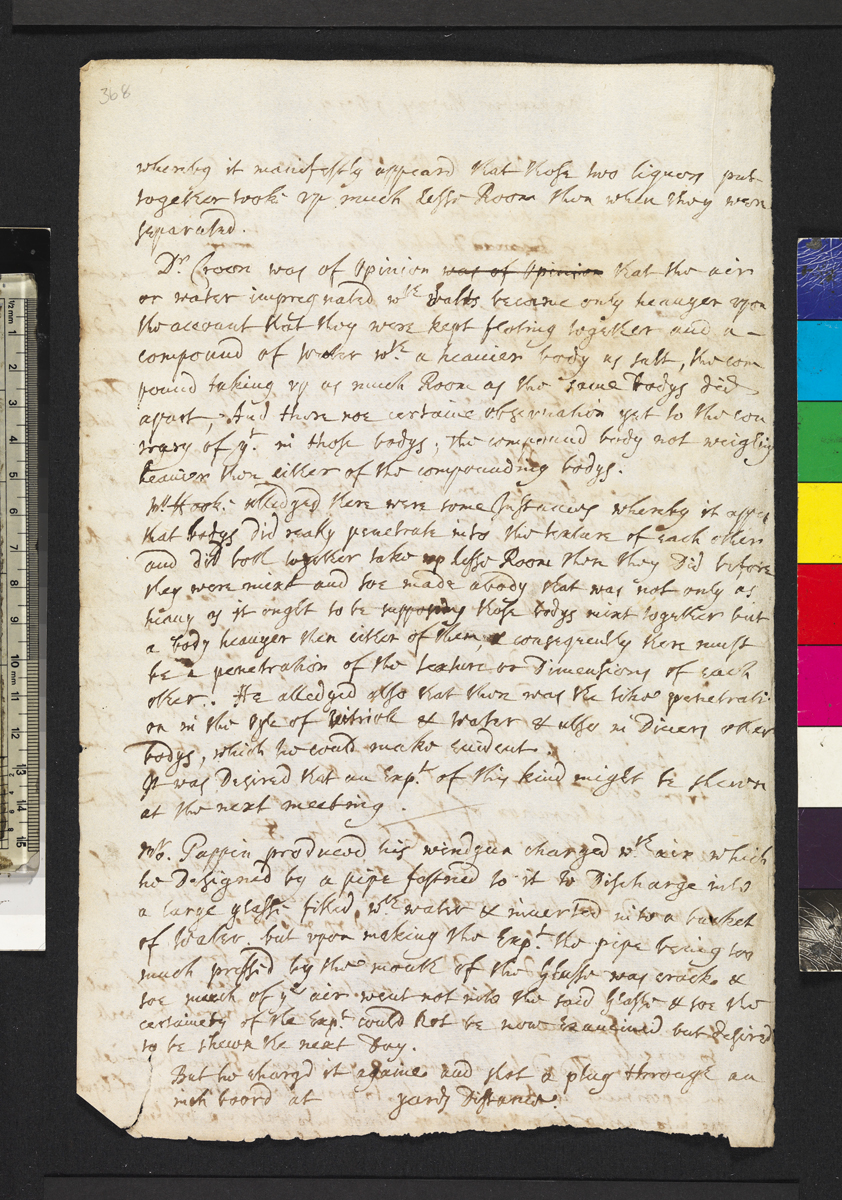 368
whereby it manifestly appeard that those two liquors put
together took up much lesse Room then when they were
separated.
Dr. Croon was of Opinion was of Opinion that the air
or water impregnated wth Salts became only heauyer upon
the account that they were kept floting together and a
compound of water wth a heauier body as salt, the com
pound taking up as much Room as the same bodys did
apart, And there noe certaine observation yet to the con
trary of yt. in those bodys; the compound body not weighing
heauier then either of the compounding bodys.
Mr. Hook alledged there were some Instances whereby it appeard
that bodys did really penetrate into the texture of each other
and did both together take up lesse Room then they did before
they were mixt and soe made a body that was not only as
heauy as it ought to be supposing those bodys mixt together but
a body heauyer then either of them, & consequently there must
be a penetration of the texture or Dimensions of each
other. He alledged also that there was the like penetrati
on in the oyle of vitriole & water & also in Divers other
bodys, which he could make Euident.
It was Desired that an Expt. of this kind might be shewn
at the next meeting.
Mr. Pappin produced his windgun charged wth air which
he Designed by a pipe fastned to it to Discharge into
a large glasse filled wth water & inuerted into a bucket
of water. but upon making the Expt. the pipe being too
much pressed by the mouth of the Glasse was crack &
soe much of ye air went not into the said Glasse & soe the
certainety of the Expt. could not be now Examined but desired
to be shewn the next Day.
But he chargd it againe and shot a plug through an
inch board at yards Distance.